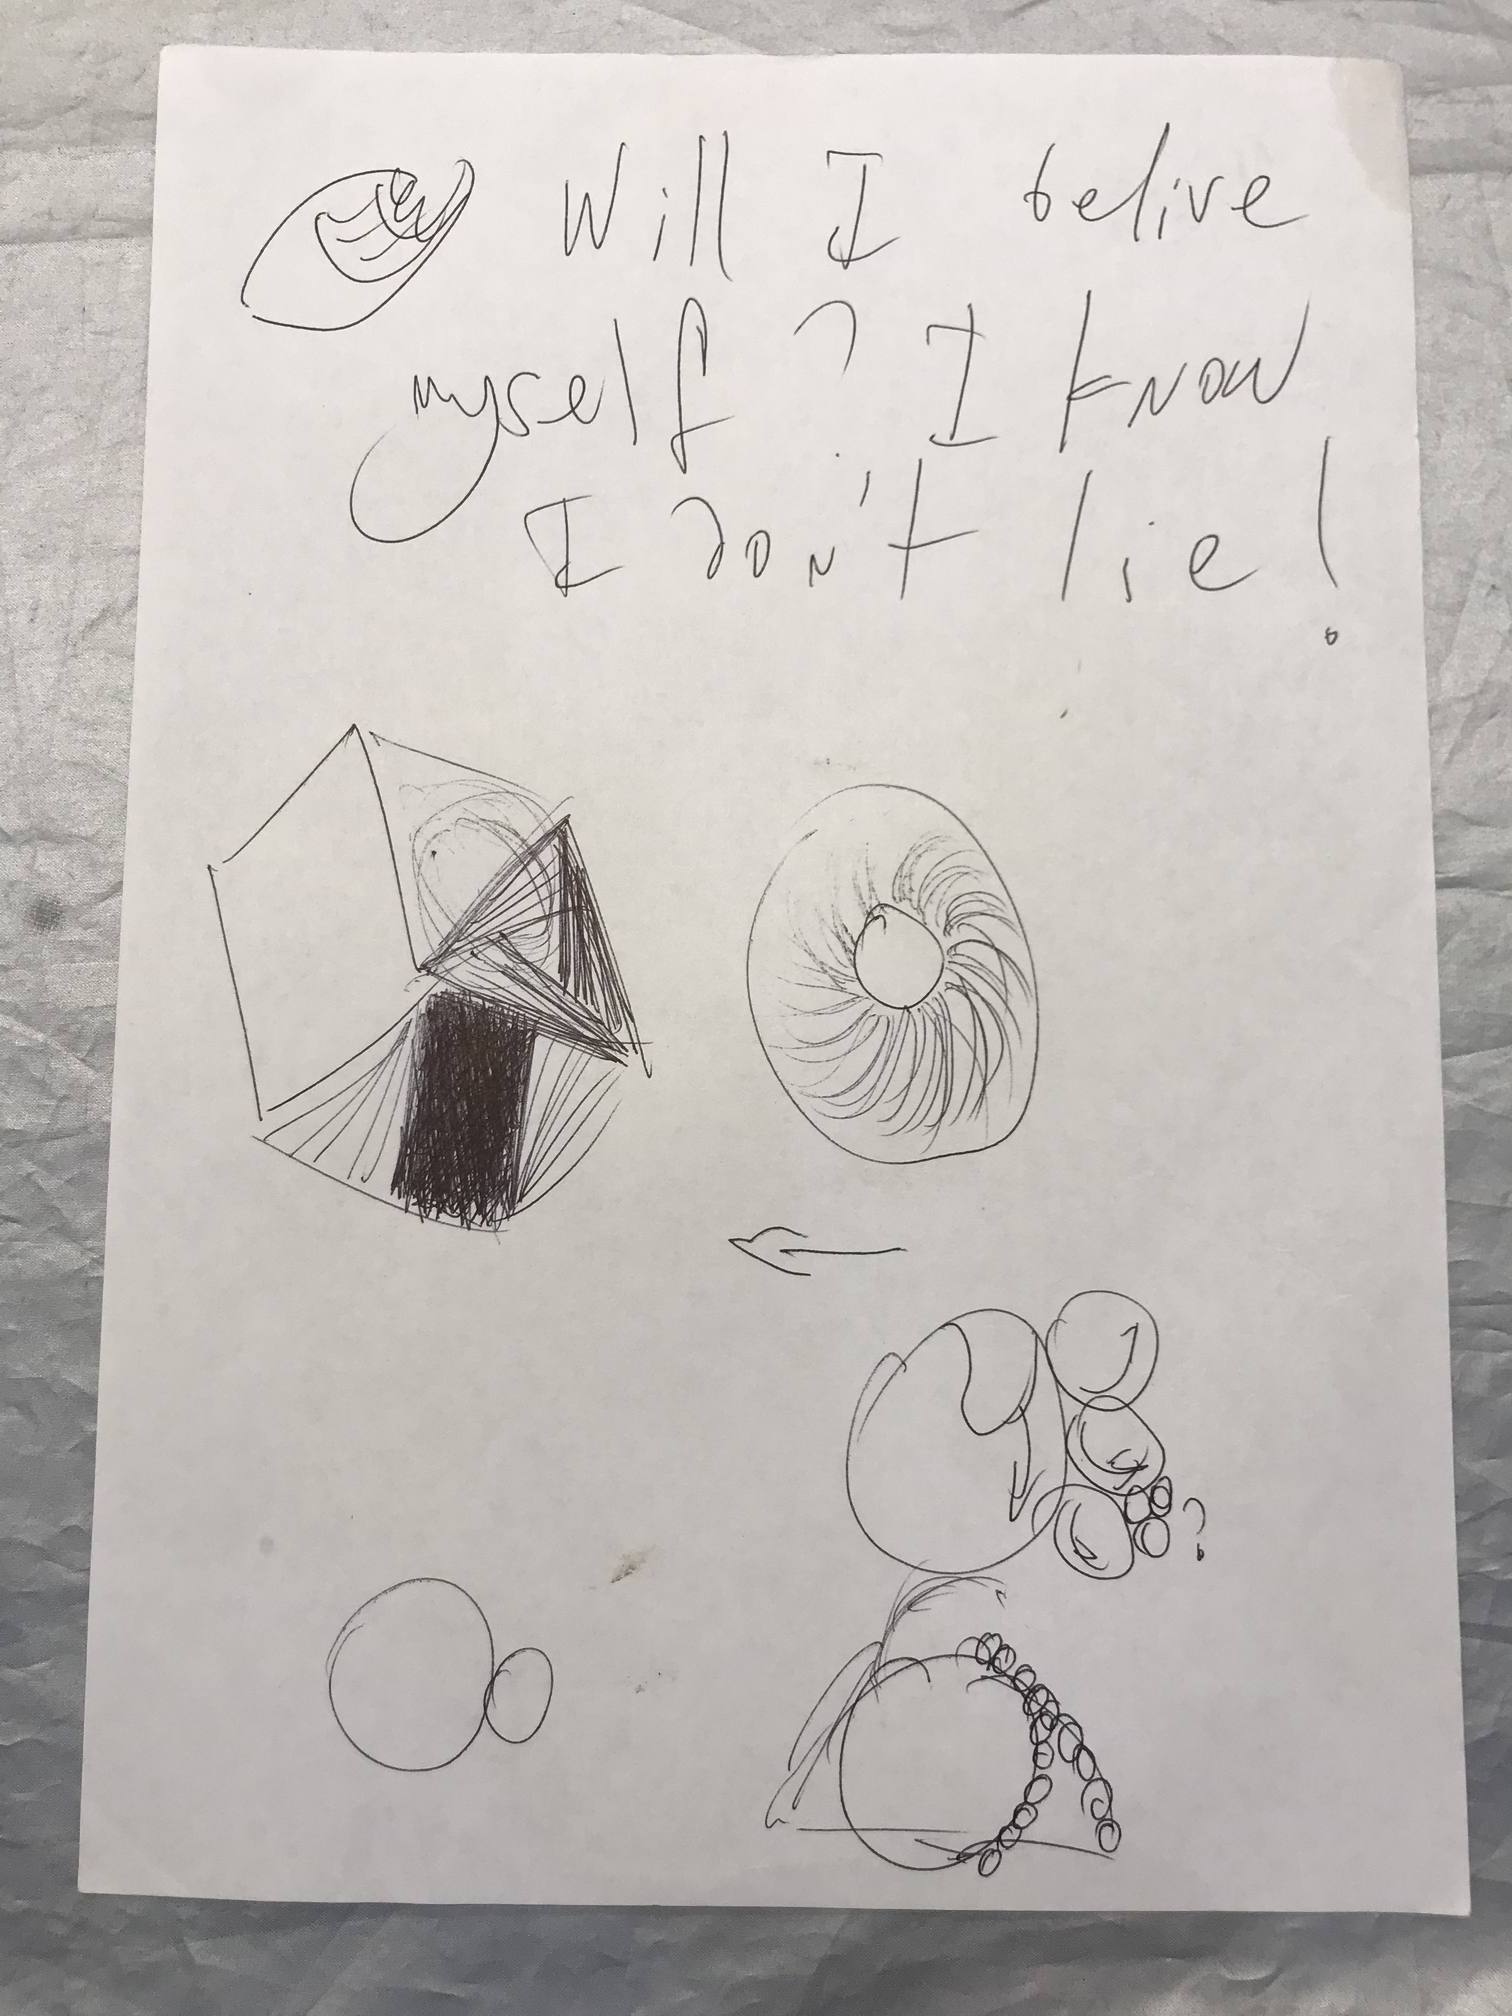 Will I belive
myself? I know
I don't lie!
?